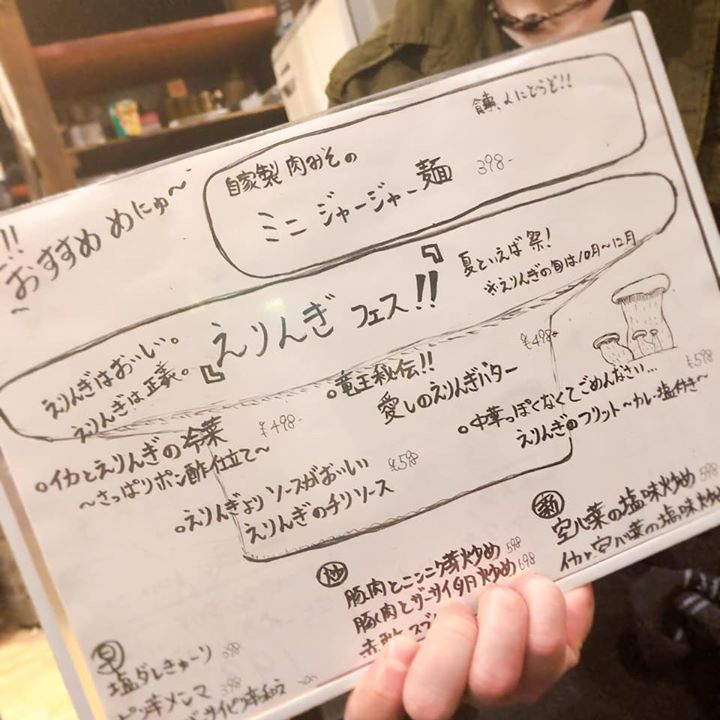 !!
おすすめ めにゅ〜
〜
自家製 肉みその
ミニ ジャージャー麺 398-
にどうぞ!!
『えりんぎ フェス!!』
夏といえば祭!
※えりんぎの旬は10月〜12月
えりんぎはおいしい。
えりんぎは正義。
○イカとえりんぎの冷菜 ¥498-
〜さっぱりポン酢仕立て〜
○竜王秘伝!! ¥498-
愛しのえりんぎバター
○えりんぎよりソースがおいしい ¥598
えりんぎのチリソース
○中華っぽくなくてごめんなさい… ¥598
えりんぎのフリット〜カレー塩付き〜
早
塩ダレきゅーり 398
ピリ辛メンマ
炒
豚肉とニンニク芽炒め 598
豚肉とザーサイ夕月炒め 698
新
空心菜の塩味炒め 598
イカと空心菜の塩味炒め